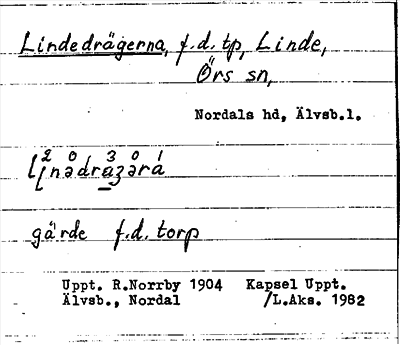 Lindedrägerna, f.d. tp, Linde,
Örs sn,
Nordals hd, Älvsb.l.
2 0 3 0 1
gärde f.d. torp
Uppt. R.Norrby 1904 Kapsel Uppt.
Älvsb., Nordal /L.Aks. 1982